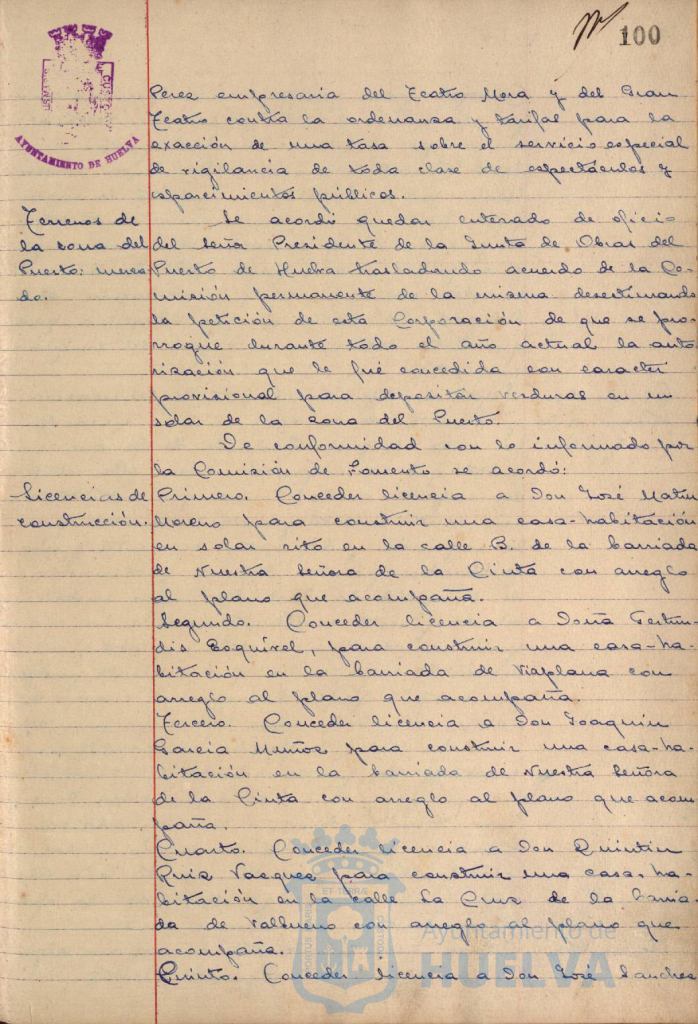 100
AYUNTAMIENTO DE HUELVA
Perez empresaria del Teatro Mora y del Gran
Teatro contra la ordenanza y tarifas para la
exacción de una tasa sobre el servicio especial
de vigilancia de toda clase de espectáculos y
esparcimientos públicos.
Terrenos de
la zona del
Puerto: merca
do.
Se acordó quedar enterado de oficio
del Señor Presidente de la Junta de Obras del
Puerto de Huelva trasladando acuerdo de la Co-
misión permanente de la misma desestimando
la petición de esta Corporación de que se pro-
rrogue durante todo el año actual la auto-
rización que le fué concedida con caracter
provisional para depositar verduras en un
solar de la zona del Puerto.
De conformidad con lo informado por
la Comisión de Fomento se acordó:
Licencias de
construcción.
Primero. Conceder licencia a Don José Matin
Moreno para construir una casa-habitación
en solar sito en la calle B. de la barriada
de Nuestra Señora de la Cinta con arreglo
al plano que acompaña.
Segundo. Conceder licencia a Doña Gertru-
dis Esquivel, para construir una casa-ha-
bitación en la barriada de Viaplana con
arreglo al plano que acompaña.
Tercero. Conceder licencia a Don Joaquin
Garcia Muñoz para construir una casa-ha-
bitación en la barriada de Nuestra Señora
de la Cinta con arreglo al plano que acom-
paña.
Cuarto. Conceder licencia a Don Quintin
Ruiz Vazquez para construir una casa-ha-
bitación en la calle La Cruz de la barria-
da de Valbueno con arreglo al plano que
acompaña.
Quinto. Conceder licencia a Don José Sanchez
Ayuntamiento de
HUELVA